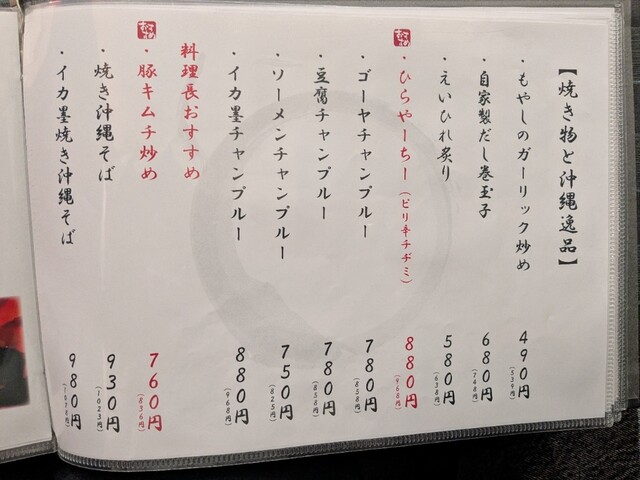 【焼き物と沖縄逸品】
・もやしのガーリック炒め 490円(539円)
・自家製だし巻玉子 680円(748円)
・えいひれ炙り 580円(638円)
・ひらやーちー(ピリ辛チヂミ) 880円(968円)
・ゴーヤチャンプルー 780円(858円)
・豆腐チャンプルー 780円(858円)
・ソーメンチャンプルー 750円(825円)
・イカ墨チャンプルー 880円(968円)
料理長おすすめ
・豚キムチ炒め 760円(836円)
・焼き沖縄そば 930円(1023円)
・イカ墨焼き沖縄そば 980円(1078円)